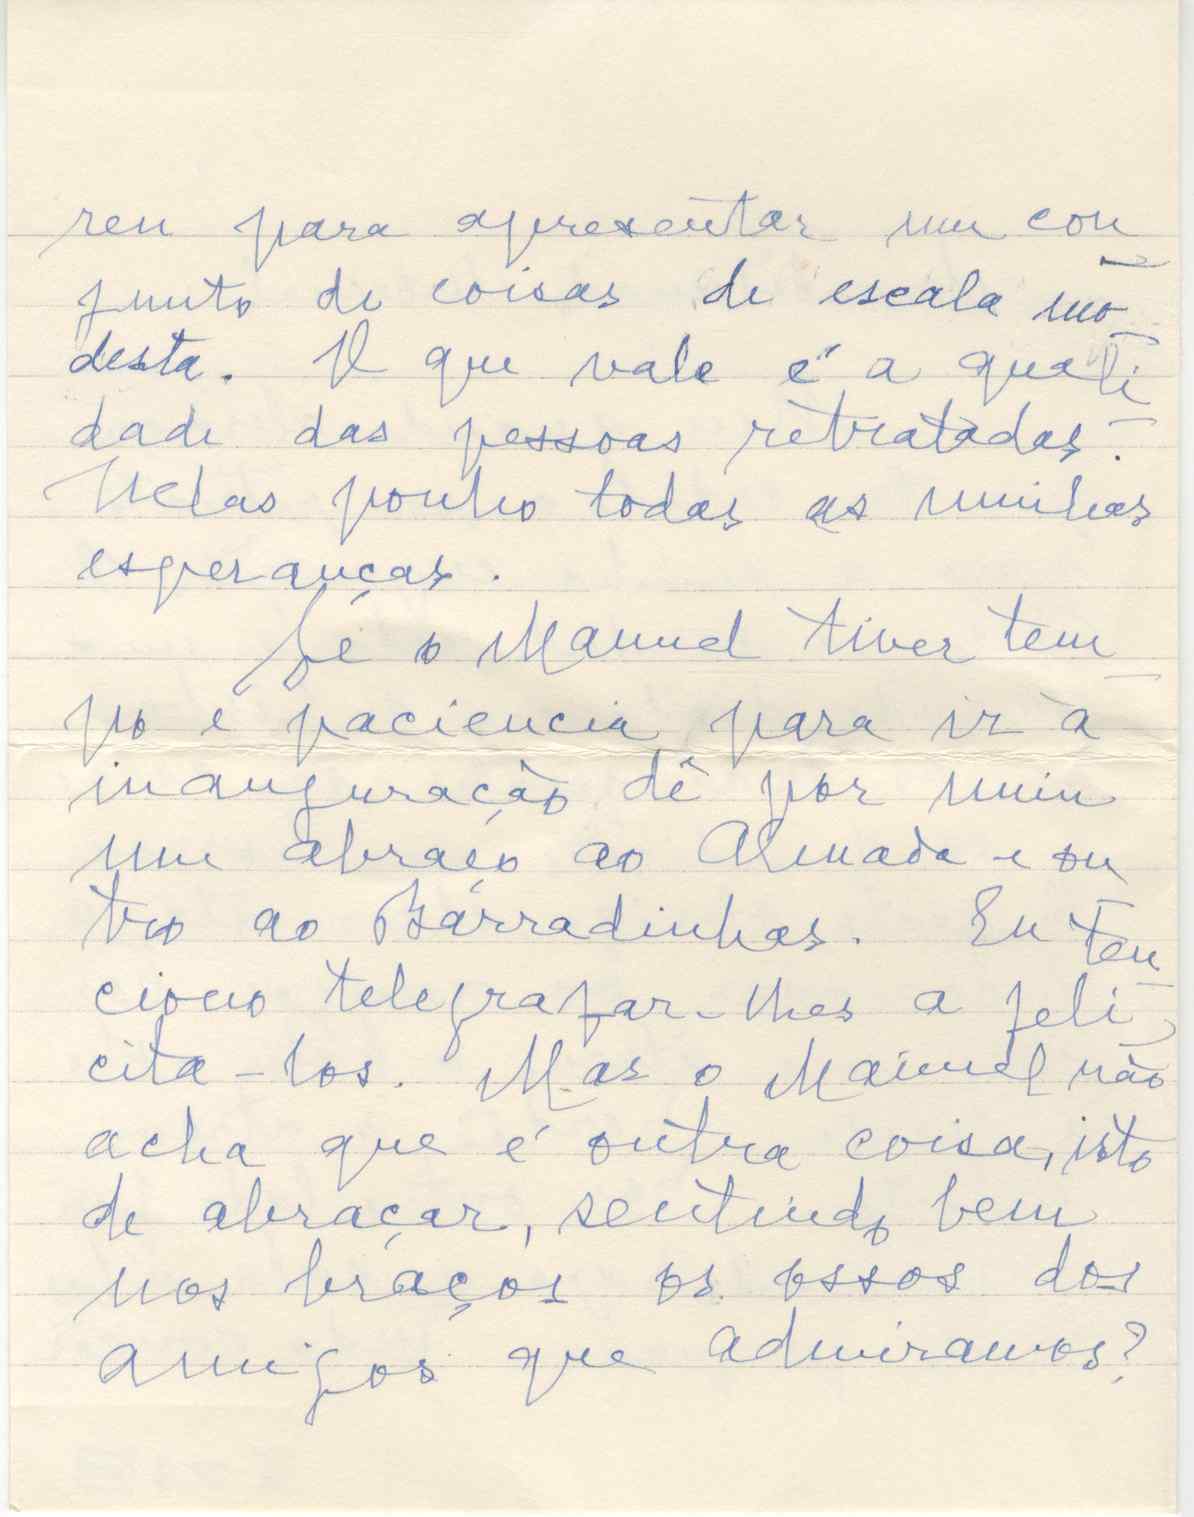 ren para apresentar um con
junto de coisas de escala mo-
desta. O que vale é a quali-
dade das pessoas retratadas.
Nelas ponho todas as minhas
esperanças.
Se o Manuel tiver tem-
po e paciencia para ir à
inauguração dê por mim
um abraço ao Almada e ou-
tro ao Barradinhas. Eu ten-
ciono telegrafar-lhes a feli-
cita-los. Mas o Manuel não
acha que é outra coisa, isto
de abraçar, sentindo bem
nos braços os ossos dos
amigos que admiramos?